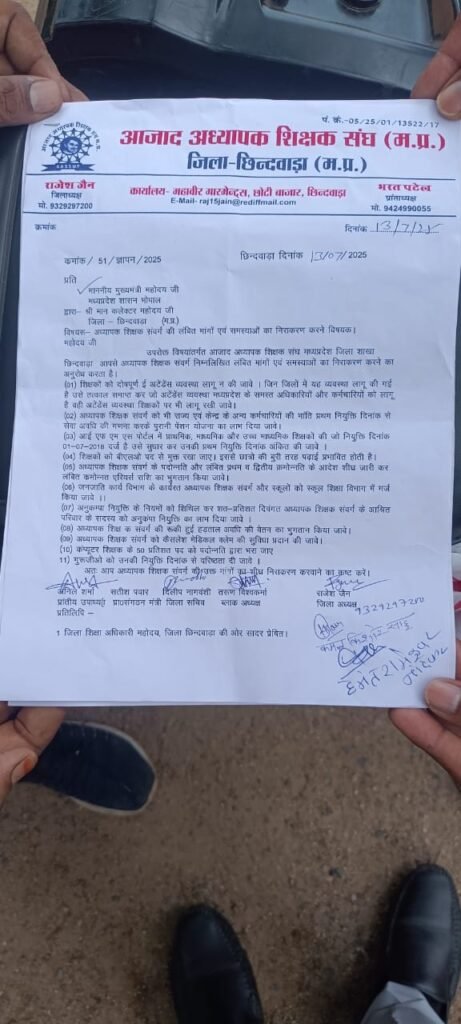 पं. क्रं.-05/25/01/13522/17
आजाद अध्यापक शिक्षक संघ (म.प्र.)
जिला-छिन्दवाड़ा (म.प्र.)
राजेश जैन
जिलाध्यक्ष
मो. 9329297200
कार्यालय- महावीर गारमेन्ट्स, छोटी बाजार, छिन्दवाड़ा
E-Mail- raj15jain@rediffmail.com
भरत पटेल
प्रांताध्यक्ष
मो. 9424990055
क्रमांक
दिनांक 13/7/25
कमांक/ 51/ज्ञापन/2025
छिन्दवाड़ा दिनांक 13/07/2025
प्रति
माननीय मुख्यमंत्री महोदय जी
मध्यप्रदेश शासन भोपाल
द्वारा- श्री मान कलेक्टर महोदय जी
जिला – छिन्दवाड़ा (म.प्र.)
विषयः- अध्यापक शिक्षक संवर्ग की लंबित मांगों एवं समस्याओं का निराकरण करने विषयक।
महोदय जी
उपरोक्त विषयांतर्गत आजाद अध्यापक शिक्षक संघ मध्यप्रदेश जिला शाखा
छिन्दवाड़ा आपसे अध्यापक शिक्षक संवर्ग निम्नलिखित लंबित मांगों एवं समस्याओं का निराकरण करने का
अनुरोध करता है।
(01) शिक्षकों को दोषपूर्ण ई अटेंडेंस व्यवस्था लागू न की जावे । जिन जिलों में यह व्यवस्था लागू की गई
है उसे तत्काल समाप्त कर जो अटेंडेंस व्यवस्था मध्यप्रदेश के समस्त अधिकारियों और कर्मचारियों को लागू
है वही अटेंडेंस व्यवस्था शिक्षकों पर भी लागू रखी जावे।
(02) अध्यापक शिक्षक संवर्ग को भी राज्य एवं केन्द्र के अन्य कर्मचारियों की भाँति प्रथम नियुक्ति दिनांक से
सेवा अवधि की गणना करके पुरानी पेंशन योजना का लाभ दिया जावे।
(03) आई एफ एम एस पोर्टल में प्राथमिक, माध्यमिक और उच्च माध्यमिक शिक्षकों की जो नियुक्ति दिनांक
01-07-2018 दर्ज है उसे सुधार कर उनकी प्रथम नियुक्ति दिनांक अंकित की जावे ।
(04) शिक्षकों को बीएलओ पद से मुक्त रखा जाए। इससे छात्रो की बुरी तरह पढ़ाई प्रभावित होती है।
(05) अध्यापक शिक्षक संवर्ग के पदोन्नति और लंबित प्रथम व द्वितीय कमोन्नति के आदेश शीघ्र जारी कर
लंबित कमोन्नत एरियर्स राशि का भुगतान किया जावे।
(06) जनजाति कार्य विभाग के कार्यरत अध्यापक शिक्षक संवर्ग और स्कूलों को स्कूल शिक्षा विभाग में मर्ज
किया जावे ।।
(07) अनुकम्पा नियुक्ति के नियमों को शिथिल कर शत-प्रतिशत दिवंगत अध्यापक शिक्षक संवर्ग के आश्रित
परिवार के सदस्य को अनुकंपा नियुक्ति का लाभ दिया जावे ।
(08) अध्यापक शिक्षक संवर्ग की रूकी हुई हड़ताल अवधि की वेतन का भुगतान किया जावे।
(09) अध्यापक शिक्षक संवर्ग को कैसलेश मेडिकल क्लेम की सुविधा प्रदान की जावे।
(10) कंप्यूटर शिक्षक के 50 प्रतिशत पद को पदोन्नति द्वारा भरा जाए
11) गुरूजीओ को उनकी नियुक्ति दिनांक से वरिष्ठता दी जावे ।
अतः आप अध्यापक शिक्षक संवर्ग की उक्त मांगों का शीघ्र निराकरण करवाने का कष्ट करें।
अनिल शर्मा सतीश पवार दिलीप नागवंशी तरूण विश्वकर्मा राजेश जैन
प्रांतीय उपाध्यक्ष प्रा0संगठन मंत्री जिला सचिव ब्लाक अध्यक्ष जिला अध्यक्ष
9329297200
प्रतिलिपि –
1 जिला शिक्षा अधिकारी महोदय, जिला छिन्दवाड़ा की ओर सादर प्रेषित।